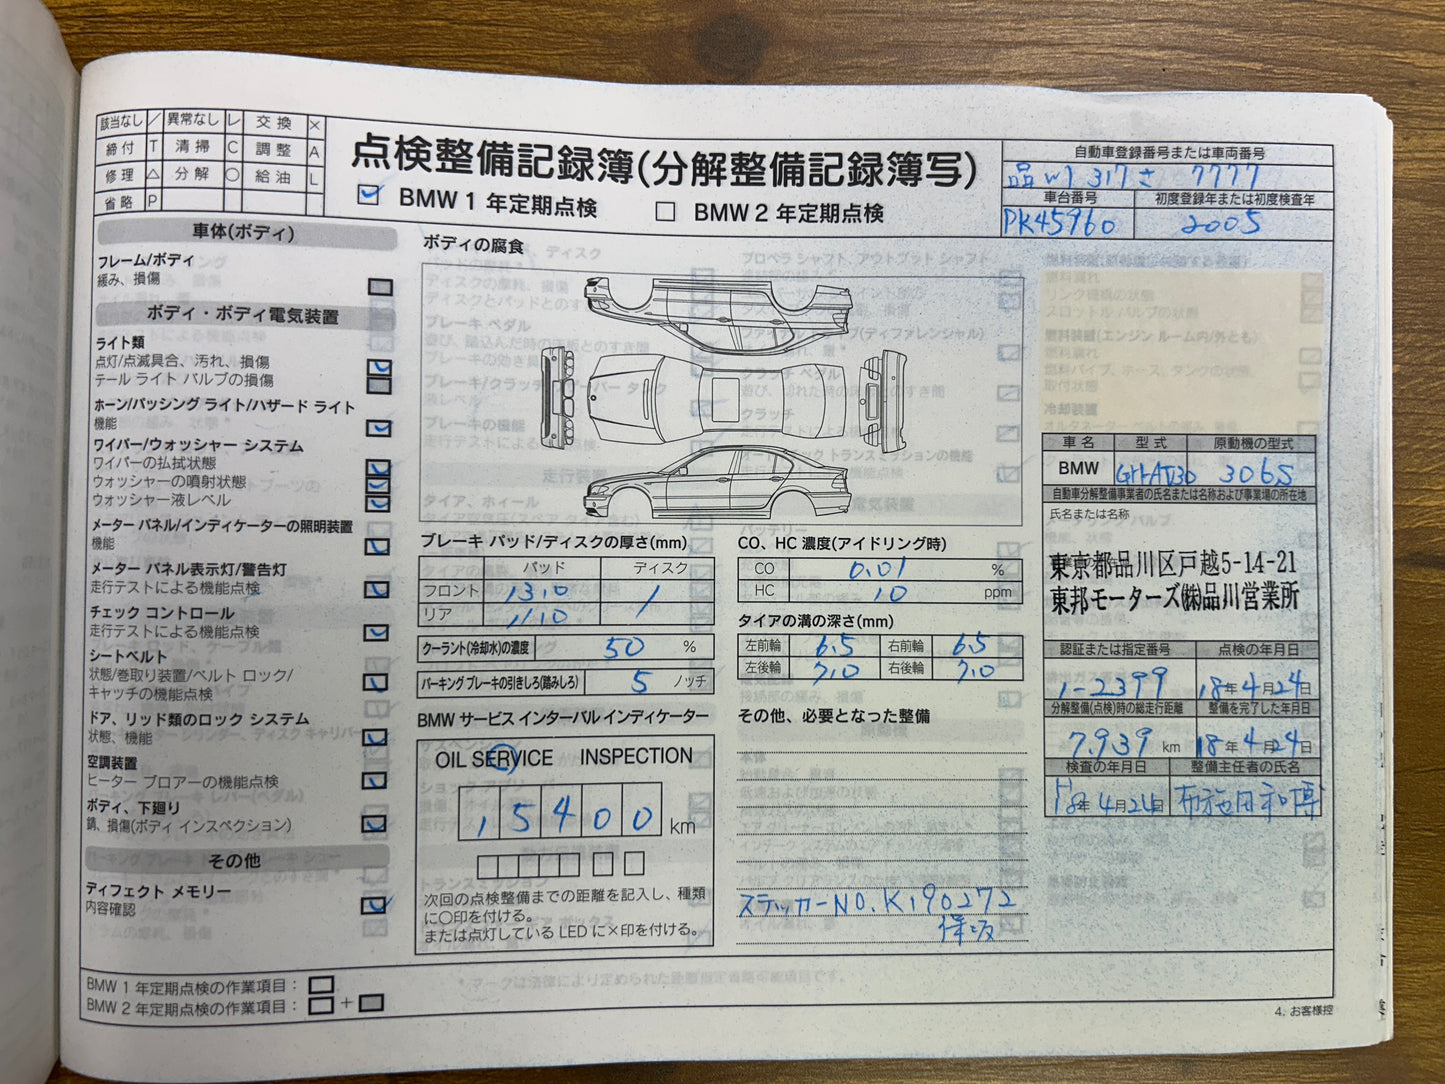 該当なし ／ 異常なし レ 交換 ×
締付 T 清掃 C 調整 A
修理 △ 分解 ○ 給油 L
省略 P
点検整備記録簿(分解整備記録簿写)
BMW 1 年定期点検 BMW 2 年定期点検
自動車登録番号または車両番号
品川 317 さ 7777
車台番号 初度登録年または初度検査年
PK45960 2005
車体(ボディ)
フレーム/ボディ
緩み、損傷
ボディ・ボディ電気装置
ライト類
点灯/点滅具合、汚れ、損傷
テール ライト バルブの損傷
ホーン/パッシング ライト/ハザード ライト
機能
ワイパー/ウォッシャー システム
ワイパーの払拭状態
ウォッシャーの噴射状態
ウォッシャー液レベル
メーター パネル/インディケーターの照明装置
機能
メーター パネル表示灯/警告灯
走行テストによる機能点検
チェック コントロール
走行テストによる機能点検
シートベルト
状態/巻取り装置/ベルト ロック/
キャッチの機能点検
ドア、リッド類のロック システム
状態、機能
空調装置
ヒーター ブロアーの機能点検
ボディ、下廻り
錆、損傷(ボディ インスペクション)
その他
ディフェクト メモリー
内容確認
BMW 1 年定期点検の作業項目：
BMW 2 年定期点検の作業項目： +
ボディの腐食
ブレーキ パッド/ディスクの厚さ(mm)
パッド ディスク
フロント 13.0 /
リア 11.0
クーラント(冷却水)の濃度 50 %
パーキング ブレーキの引きしろ(踏みしろ) 5 ノッチ
BMW サービス インターバル インディケーター
OIL SERVICE INSPECTION
15400 km
次回の点検整備までの距離を記入し、種類
に〇印を付ける。
または点灯している LED に×印を付ける。
CO、HC 濃度(アイドリング時)
CO 0.01 %
HC 10 ppm
タイアの溝の深さ(mm)
左前輪 6.5 右前輪 6.5
左後輪 7.0 右後輪 7.0
その他、必要となった整備
ステッカーNO. K190272
保坂
車名 型式 原動機の型式
BMW GH-AV30 306S
自動車分解整備事業者の氏名または名称および事業場の所在地
氏名または名称
東京都品川区戸越5-14-21
東邦モーターズ㈱品川営業所
認証または指定番号 点検の年月日
1-2399 18年 4月 24日
分解整備(点検)時の総走行距離 整備を完了した年月日
7,939 km 18年 4月 24日
検査の年月日 整備主任者の氏名
18年 4月 24日 布施田和博
4. お客様控